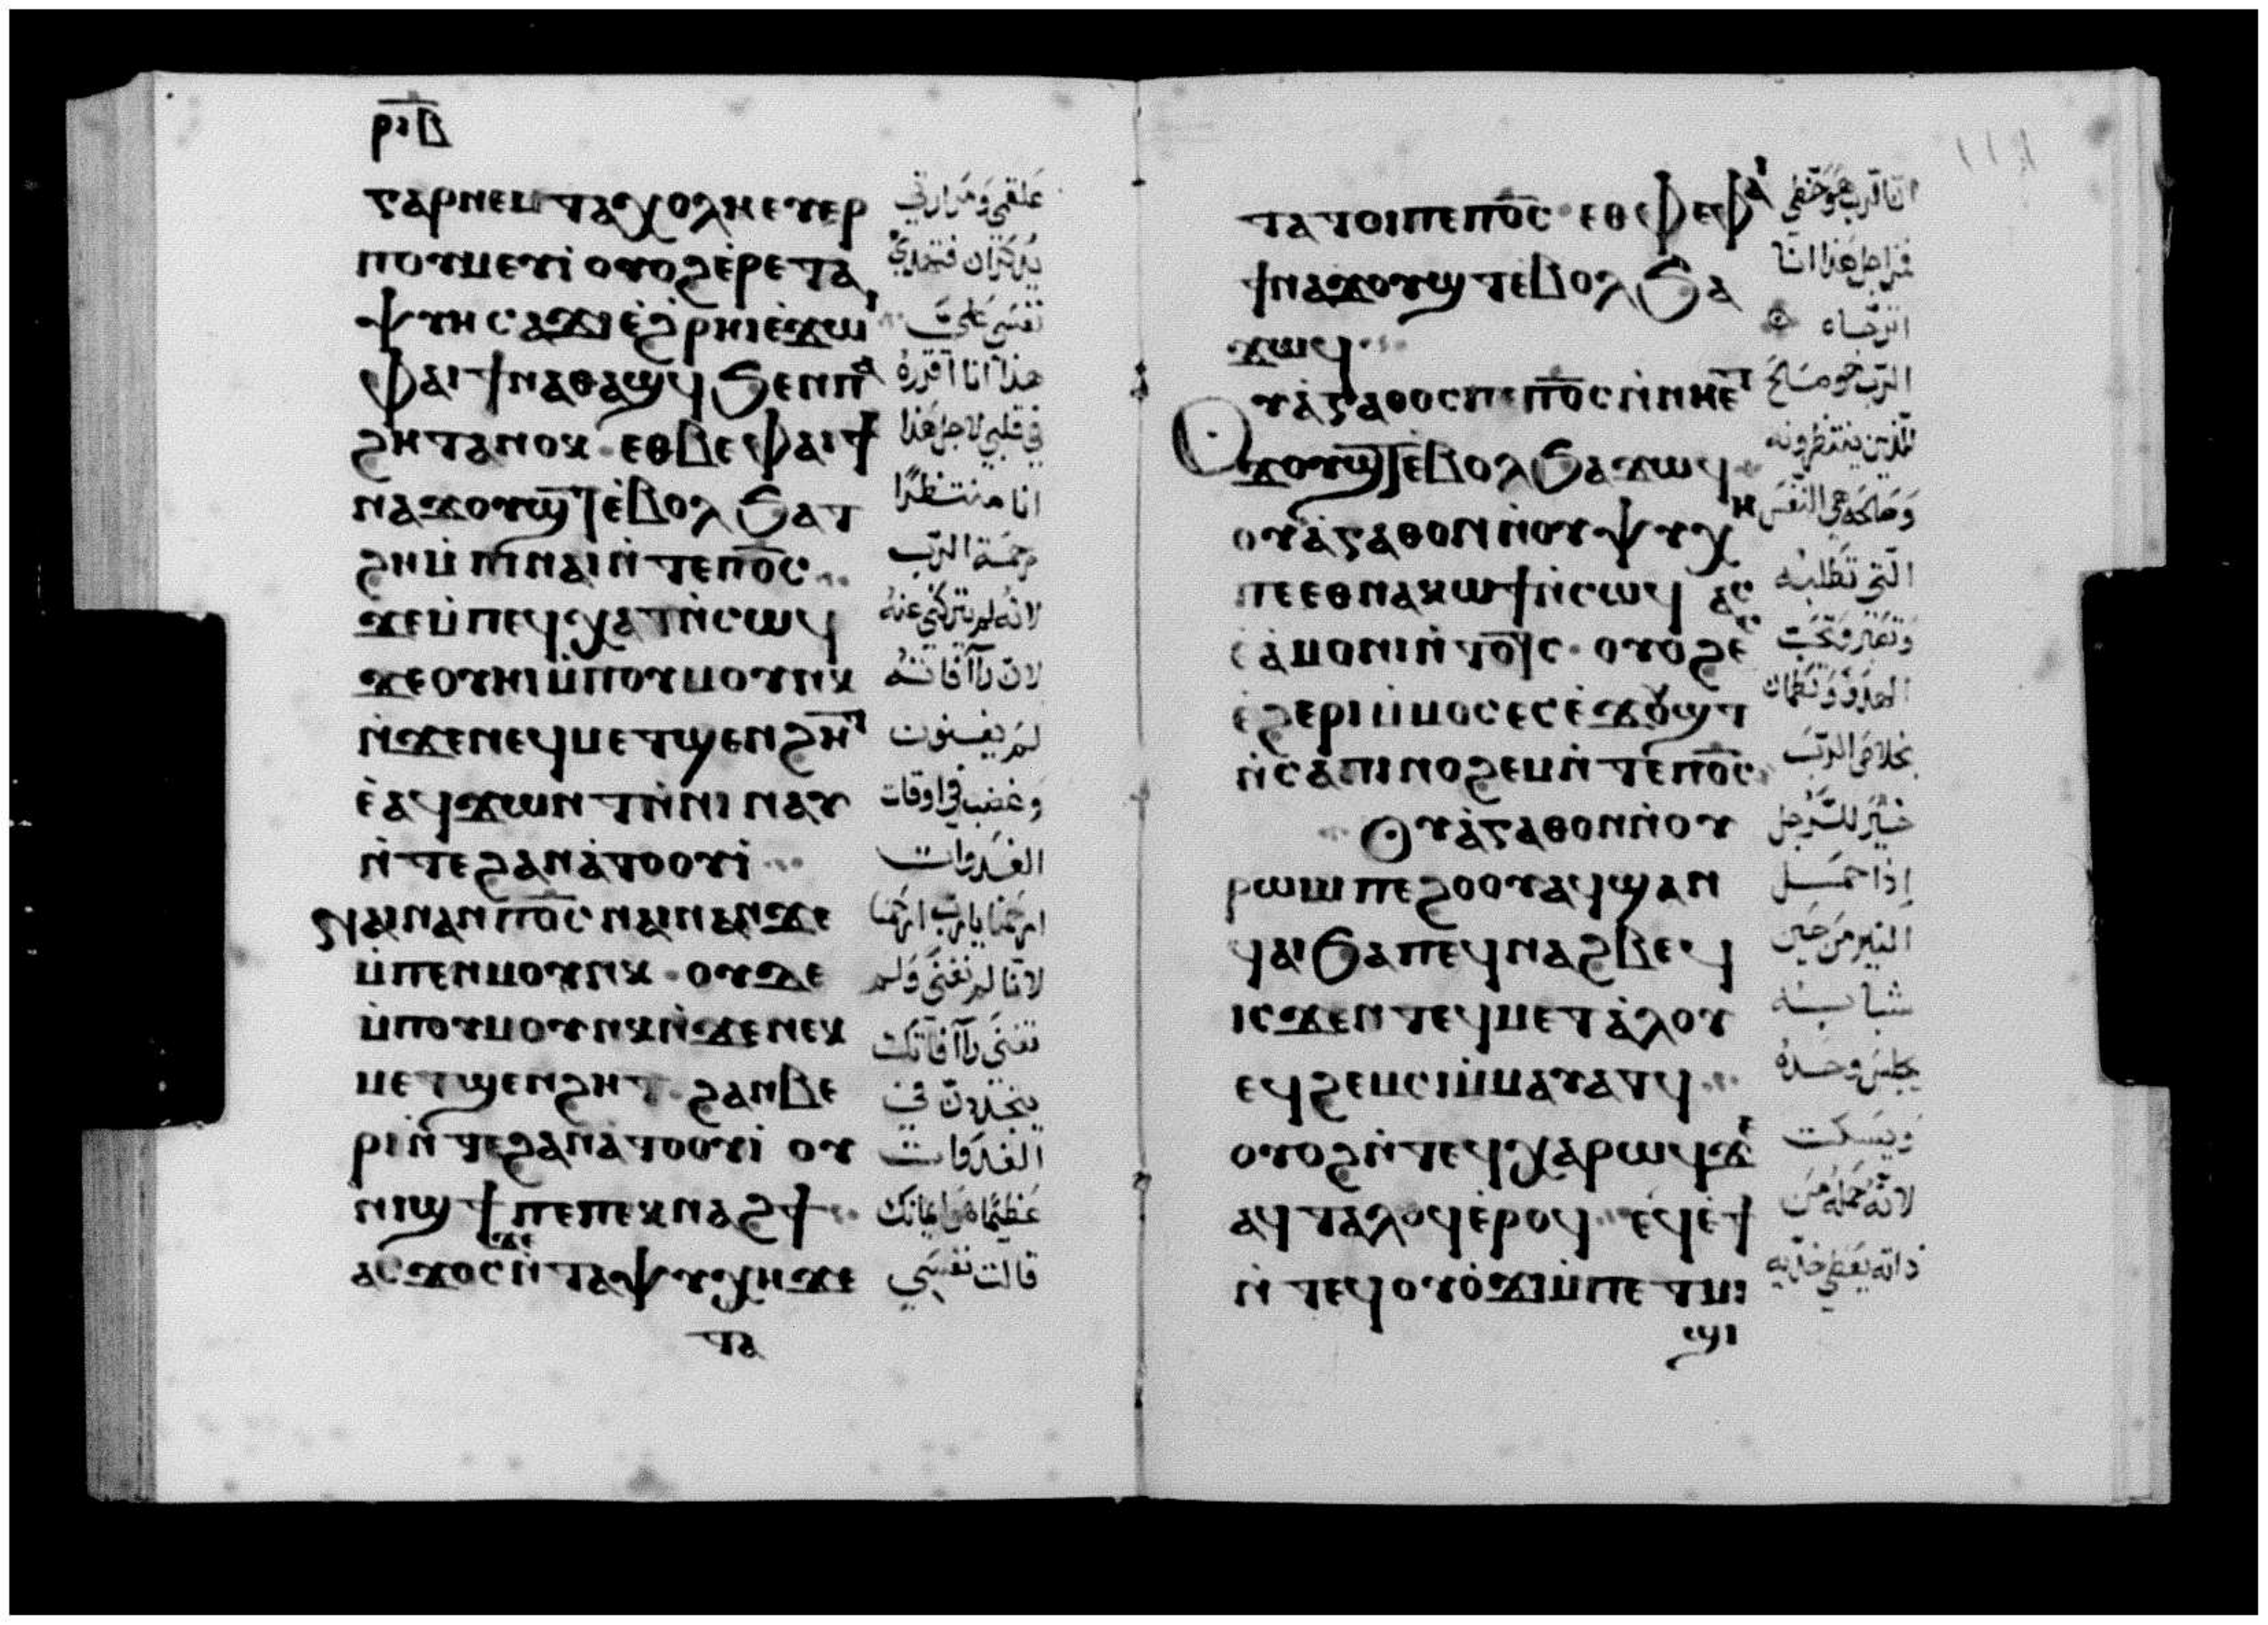 ⲣⲓⲃ
ϣⲁⲣⲛⲉⲙⲧⲁⲭⲟⲗⲏⲉⲩⲉⲣ
ⲡⲟⲩⲙⲉⲩⲓ̀ ⲟⲩⲟϩⲉ̀ⲣⲉⲧⲁ
ⲯⲩⲏⲥⲁϫⲓⲉ̀ϩⲣⲏⲓⲉ̀ϫⲱⲓ
ⲫⲁⲓϯⲛⲁⲑⲁϣϥϧⲉⲛⲡⲁ
ϩⲏⲧⲁⲛⲟⲕ·ⲉⲑⲃⲉⲫⲁⲓϯ
ⲛⲁϫⲟⲩϣⲧⲉ̀ⲃⲟⲗϧⲁⲧ
ϩⲏⲙ̀ⲡⲓⲛⲁⲓⲛ̀ⲧⲉⲡⲟ̅ⲥ
ϫⲉⲙ̀ⲡⲉϥⲭⲁⲧⲛ̀ⲥⲱϥ
ϫⲉⲟⲩⲏⲓⲙ̀ⲡⲟⲩⲙⲟⲩⲛⲕ
ⲛ̀ϫⲉⲛⲉϥⲙⲉⲧϣⲉⲛϩⲏⲧ
ⲉ̀ⲁϥϫⲱⲛⲧⲛ̀ⲛⲓⲛⲁⲩ
ⲛ̀ⲧⲉϩⲁⲛⲁ̀ⲧⲟⲟⲩⲓ̀
ⲛⲁⲓⲛⲁⲛⲡⲟ̅ⲥⲛⲁⲓⲛⲁⲛϫⲉ
ⲙ̀ⲡⲉⲛⲙⲟⲩⲛⲕ·ⲟⲩϫⲉ
ⲙ̀ⲡⲟⲩⲙⲟⲩⲛⲕⲛ̀ϫⲉⲛⲉⲕ
ⲙⲉⲧϣⲉⲛϩⲏⲧ·ϩⲁⲛⲃⲉ
ⲣⲓⲛ̀ⲧⲉϩⲁⲛⲁ̀ⲧⲟⲟⲩⲓ̀ ⲟⲩ
ⲛⲓϣϯⲡⲉⲡⲉⲕⲛⲁϩϯ
ⲁⲥϫⲟⲥⲛ̀ϫⲉⲧⲁⲯⲩⲭⲏϫⲉ
ⲧⲁ
علقمي ومرارتي
يذكران فتتحدث
نفسي علي
هذا انا اقرره
في قلبي لاجل هذا
انا منتظرًا
رحمة الرب
لانه لم يتركني عنه
لان رأفاته
لم يفنون
وغضب في اوقات
الغدوات
ارحمنا يا رب ارحمنا
لاننا لم نفنى ولم
تفنى رأفاتك
يتجددن في
الغدوات
عظيمًا هو ايمانك
قالت نفسي
ⲧⲁⲧⲟⲓⲡⲉⲡⲟ̅ⲥ·ⲉⲑⲃⲉⲫⲁⲓ
ϯⲛⲁϫⲟⲩϣⲧⲉ̀ⲃⲟⲗϧⲁ
ϫⲱϥ
ⲟⲩⲁ̀ⲅⲁⲑⲟⲥⲡⲉⲡⲟ̅ⲥⲛ̀ⲛⲏⲉⲧ
ϫⲟⲩϣⲧⲉ̀ⲃⲟⲗϧⲁϫⲱϥ
ⲟⲩⲁ̀ⲅⲁⲑⲟⲛⲛ̀ⲟⲩⲯⲩⲭⲏ
ⲡⲉⲉⲑⲛⲁⲕⲱϯⲛ̀ⲥⲱϥ ⲁⲥ
ⲉ̀ⲁ̀ⲙⲟⲛⲓⲛ̀ⲧⲟⲧⲥ·ⲟⲩⲟϩⲉ
ⲉ̀ϩⲉⲣⲓⲙ̀ⲙⲟⲥⲉⲥⲉ̀ϫⲟⲩϣⲧ
ⲛ̀ⲥⲁⲡⲓⲛⲟϩⲉⲙⲛ̀ⲧⲉⲡⲟ̅ⲥ
ⲟⲩⲁ̀ⲅⲁⲑⲟⲛⲛ̀ⲟⲩ
ⲣⲱⲙⲓⲡⲉϩⲟⲟⲩⲁϥϣⲁⲛ
ϥⲁⲓϧⲁⲡⲉϥⲛⲁϩⲃⲉϥ
ⲓⲥϫⲉⲛⲧⲉϥⲙⲉⲧⲁ̀ⲗⲟⲩ
ⲉϥϩⲉⲙⲥⲓⲙ̀ⲙⲁⲩⲁⲧϥ
ⲟⲩⲟϩⲛ̀ⲧⲉϥⲭⲁⲣⲱϥϫⲉ
ⲁϥⲧⲁⲗⲟϥⲉ̀ⲣⲟϥ ⲉϥⲉ̀ϯ
ⲛ̀ⲧⲉϥⲟⲩⲟ̀ϫⲓⲙ̀ⲡⲉⲧⲛⲓ
ϣⲓ
انا الرب هو حظي
فمن اجل هذا انا
اترجاه
الرب هو صالح
للذين ينتظرونه
وصالحة هي النفس
التي تطلبه
بخلاص الرب
خير للرجل
إذا حمل
النير من حين
شبابه
يجلس وحده
ويسكت
لانه حمله من
ذاته يعطي خديه